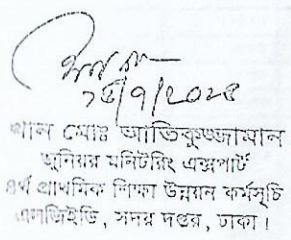 ১৫/৭/২০২৫
খান মোঃ আতিকুজ্জামান
জুনিয়র মনিটরিং এক্সপার্ট
৪র্থ প্রাথমিক শিক্ষা উন্নয়ন কর্মসূচি
এলজিইডি, সদর দপ্তর, ঢাকা।